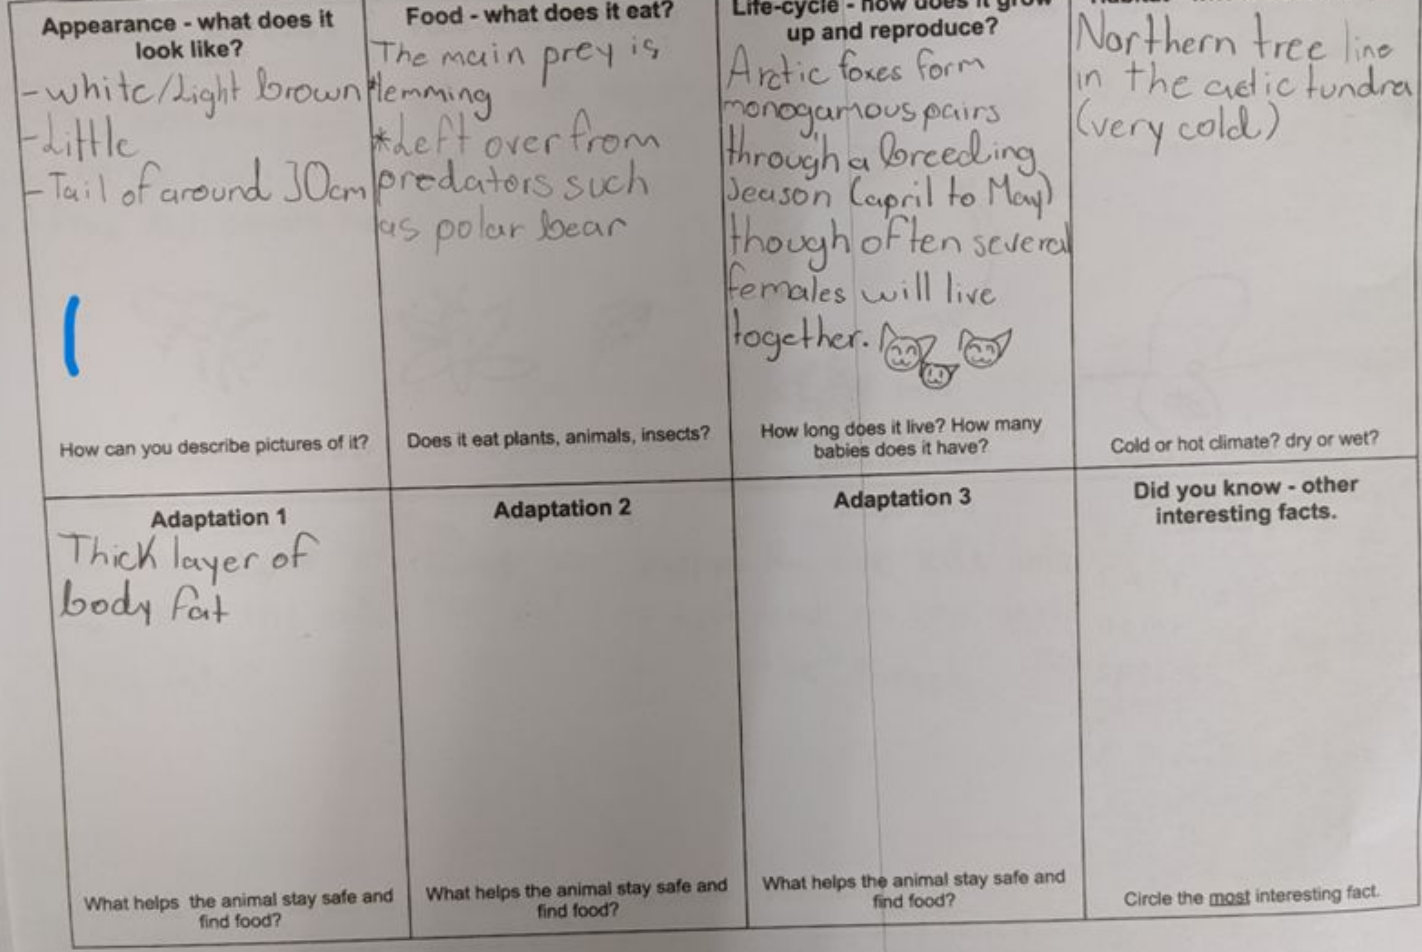 Appearance - what does it
look like?
-white/Light brown
-Little
-Tail of around 30cm
How can you describe pictures of it?
Food - what does it eat?
The main prey is
*lemming
*Left over from
predators such
as polar bear
Does it eat plants, animals, insects?
Life-cycle - how does it grow
up and reproduce?
Arctic foxes form
monogamous pairs
through a breeding
season (april to May)
though often several
females will live
together.
How long does it live? How many
babies does it have?
Northern tree line
in the arctic tundra
(very cold)
Cold or hot climate? dry or wet?
Adaptation 1
Thick layer of
body fat
What helps the animal stay safe and
find food?
Adaptation 2
What helps the animal stay safe and
find food?
Adaptation 3
What helps the animal stay safe and
find food?
Did you know - other
interesting facts.
Circle the most interesting fact.